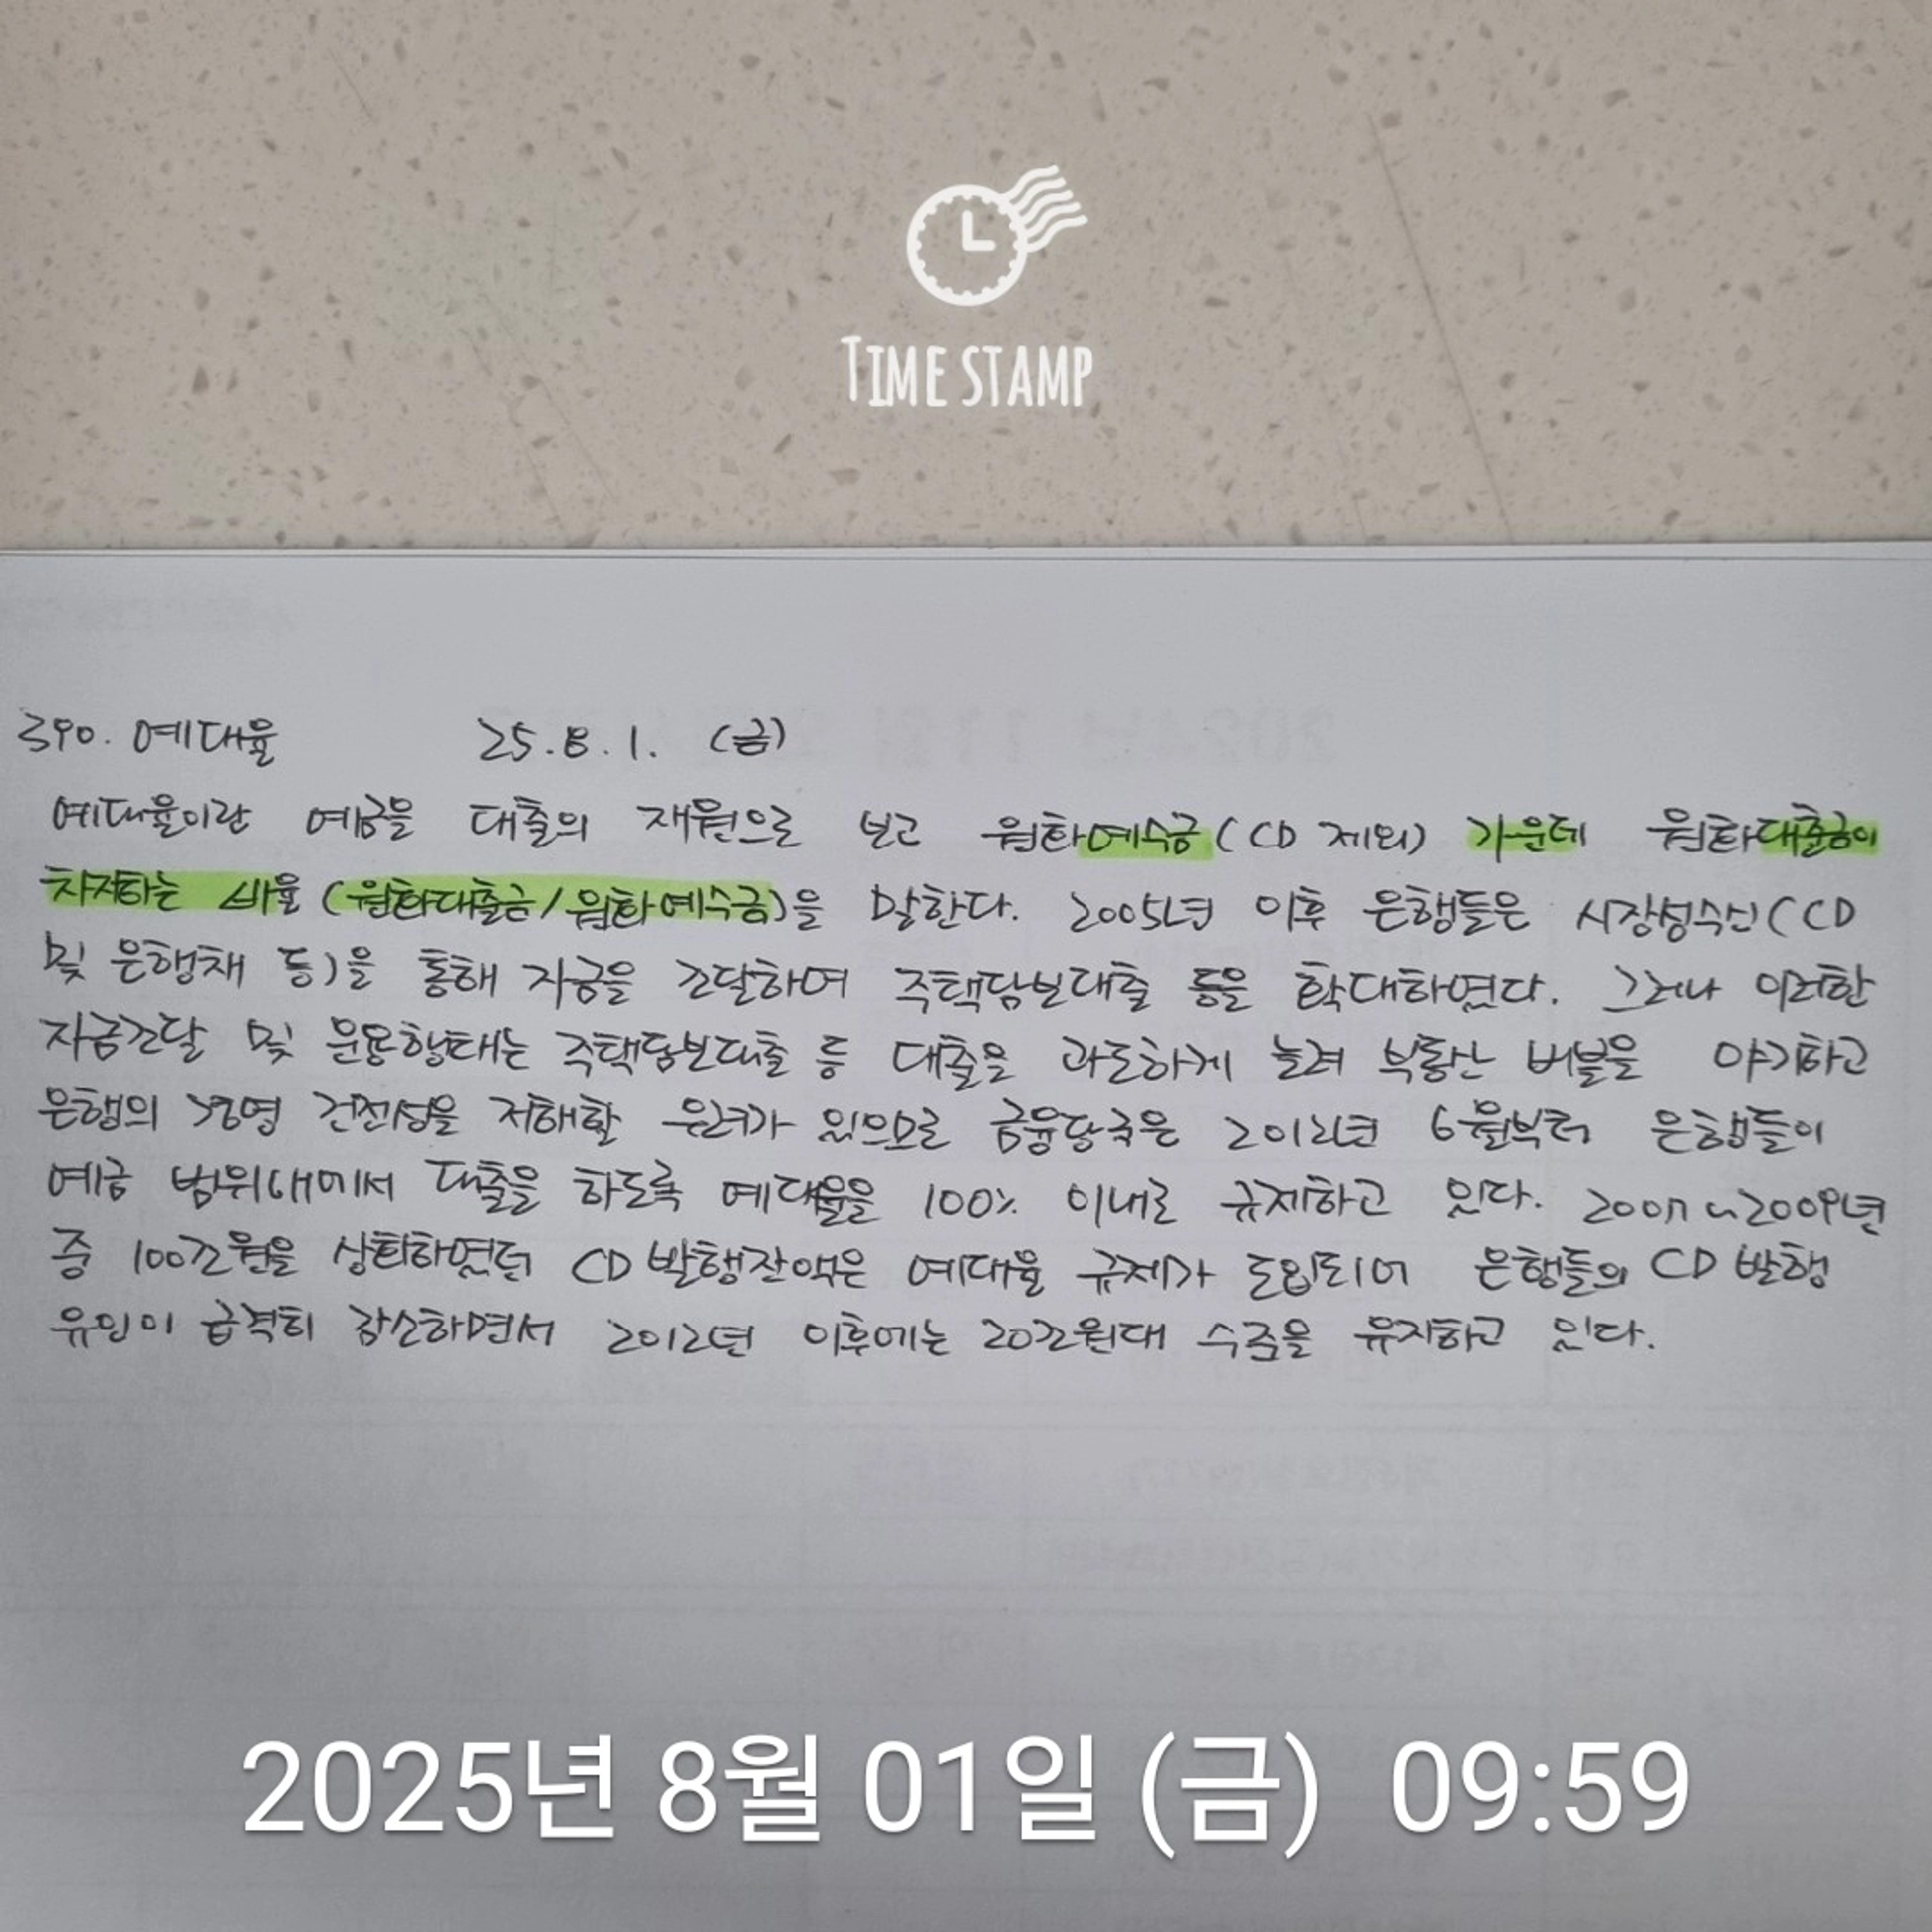 TIME STAMP
390. 예대율 25.8.1. (금)
예대율이란 예금을 대출의 재원으로 보고 원화예수금(CD 제외) 가운데 원화대출금이
차지하는 비율(원화대출금/원화예수금)을 말한다. 2005년 이후 은행들은 시장성수신(CD
및 은행채 등)을 통해 자금을 조달하여 주택담보대출 등을 확대하였다. 그러나 이러한
자금조달 및 운용형태는 주택담보대출 등 대출을 과도하게 늘려 부동산 버블을 야기하고
은행의 경영 건전성을 저해할 우려가 있으므로 금융당국은 2012년 6월부터 은행들이
예금 범위내에서 대출을 하도록 예대율을 100% 이내로 규제하고 있다. 2007~2009년
중 100조원을 상회하였던 CD발행잔액은 예대율 규제가 도입되어 은행들의 CD 발행
유인이 급격히 감소하면서 2012년 이후에는 20조원대 수준을 유지하고 있다.
2025년 8월 01일 (금) 09:59